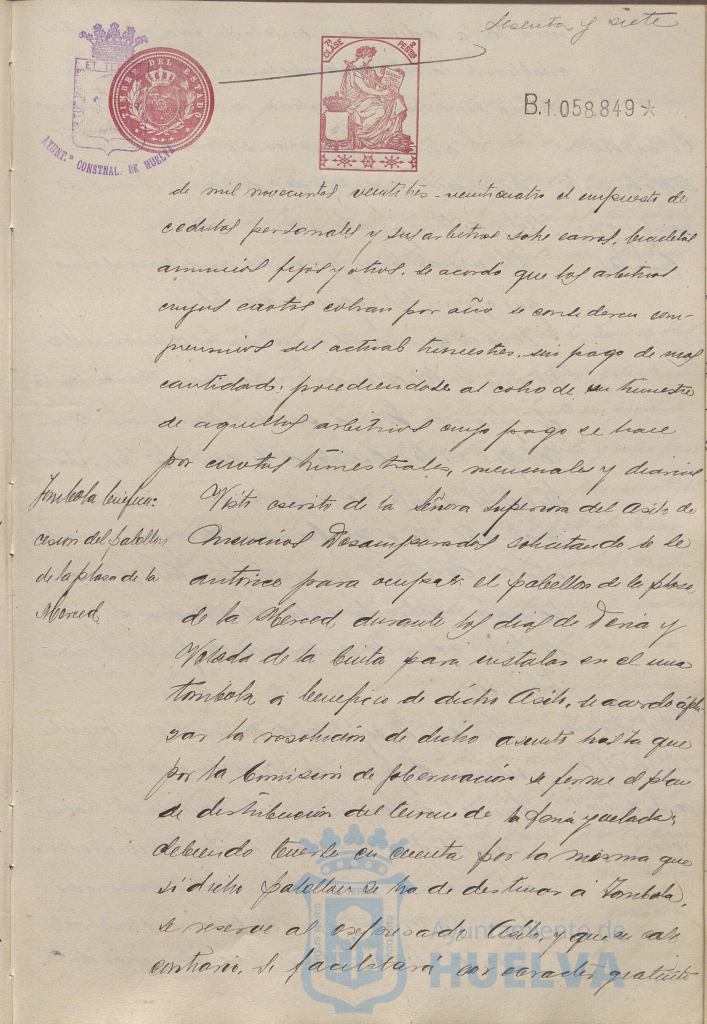 Sesenta y siete
TIMBRE DEL ESTADO
7ª CLASE
2 PESETAS
B.1.058.849*
AYUNT.º CONSTNAL. DE HUELVA
de mil novecientos veintitres-veinticuatro el impuesto de
cedulas personales y sus arbitrios sobre carros, bicicletas
anuncios fijos y otros, se acordó que los arbitrios
cuyas cuotas cobran por año se consideren com-
prensivos del actual trimestre, sin pago de mas
cantidad; procediendose al cobro de un trimestre
de aquellos arbitrios cuyo pago se hace
por cuotas trimestrales, mensuales y diarias
Tombola benefica:
cesión del pabellon
de la plaza de la
Merced
Visto escrito de la Señora Superiora del Asilo de
Ancianos Desamparados solicitando se le
autorice para ocupar el pabellon de la plaza
de la Merced durante los dias de Feria y
Velada de la Cinta para instalar en el una
tombola a beneficio de dicho Asilo, se acordó apla
zar la resolución de dicho asunto hasta que
por la Comisión de Gobernación se forme el plan
de distribución del terreno de la feria y velada,
debiendo tenerse en cuenta por la misma que
si dicho pabellon se ha de destinar a Tombola,
se reserve al expresado Asilo, y que en caso
contrario, se facilitará con caracter gratuito
Ayuntamiento de
HUELVA